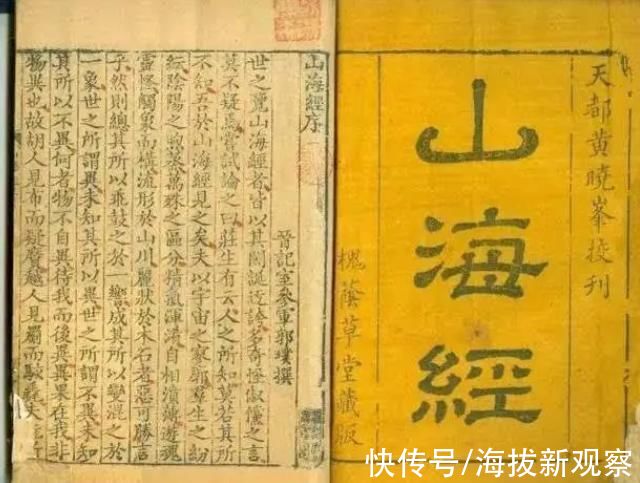 天都黃曉峯挍刊
山海經
槐蔭草堂藏版
山海經序
晉記室參軍郭璞撰
世之覽山海經者皆以其閎誕迂誇多奇怪俶儻之言
莫不疑焉嘗試論之曰莊生有云人之所知莫若其所
不知吾於山海經見之矣夫以宇宙之寥廓群生之紛
紜陰陽之煦蒸萬殊之區分精氣渾淆自相濆薄遊魂
靈怪觸象而構流形於山川麗狀於木石者惡可勝言
乎然則總其所以乖鼓之於一響成其所以變混之於
一象世之所謂異未知其所以異世之所謂不異未知
其所以不異何者物不自異待我而後異異果在我非
物異也故胡人見布而疑黂越人見罽而駭毳夫
快传号/海拔新观察